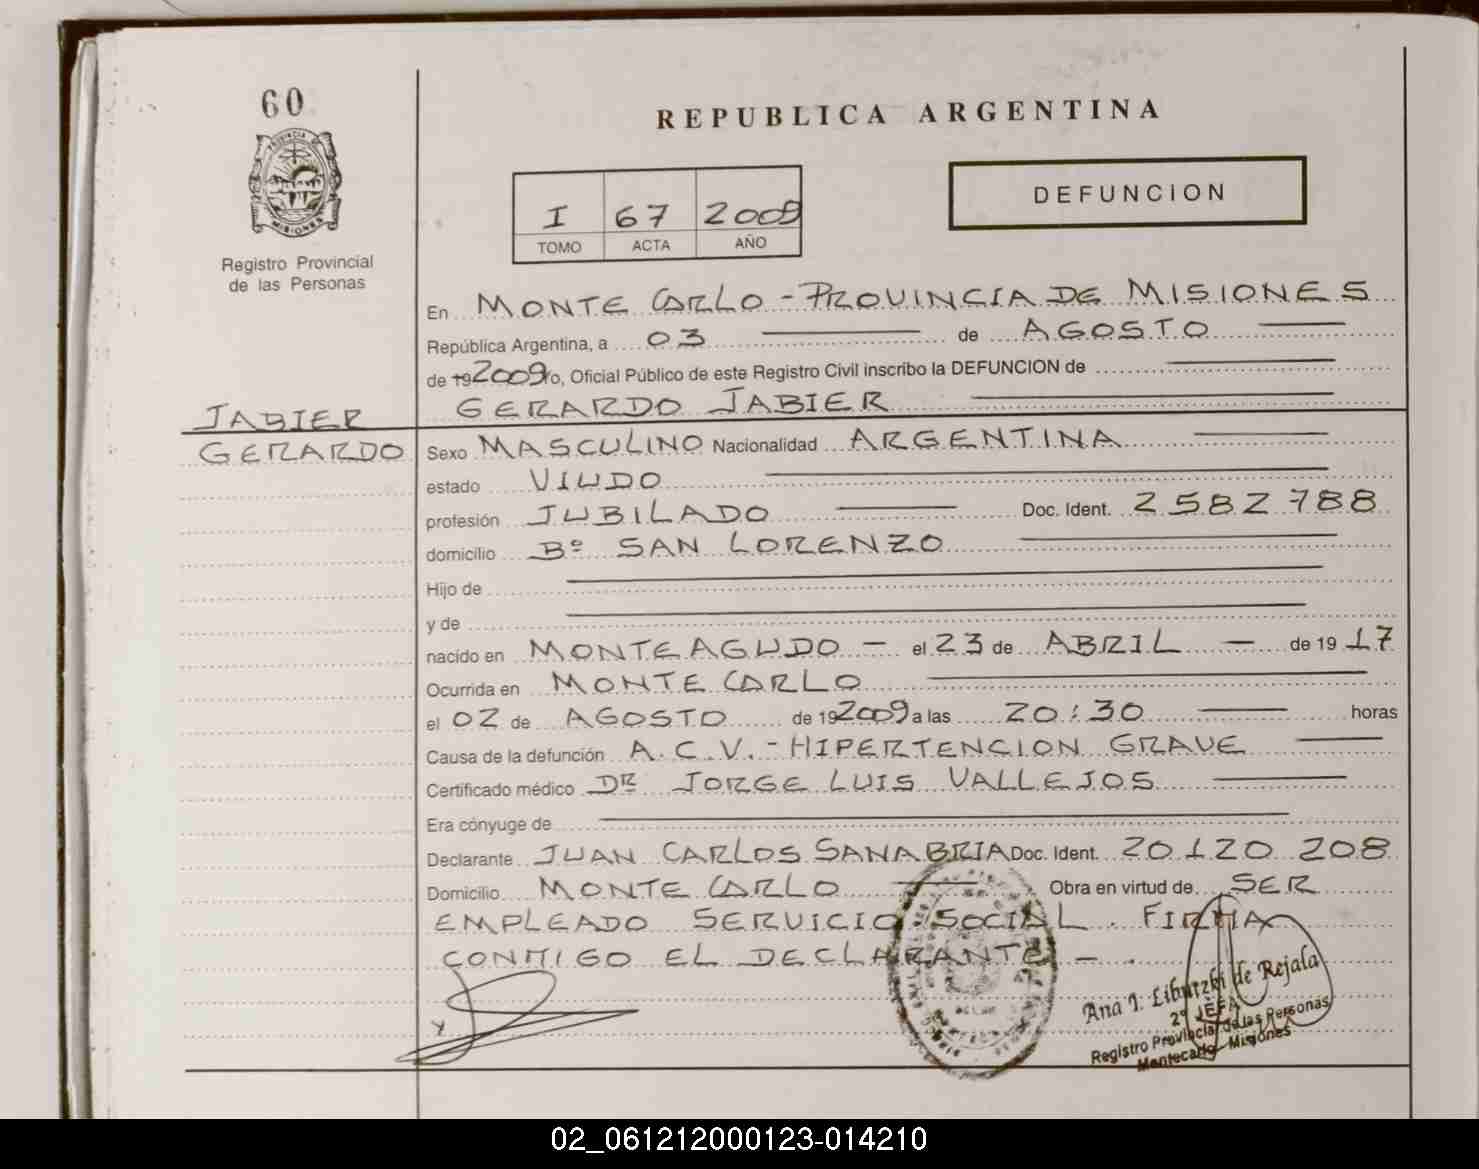 60
PROVINCIA DE
MISIONES
Registro Provincial
de las Personas
REPUBLICA ARGENTINA
I 67 2009
TOMO ACTA AÑO
DEFUNCION
En MONTE CARLO - PROVINCIA DE MISIONES
República Argentina, a 03 de AGOSTO
de 192009 yo, Oficial Público de este Registro Civil inscribo la DEFUNCION de
GERARDO JABIER
JABIER
GERARDO
Sexo MASCULINO Nacionalidad ARGENTINA
estado VIUDO
profesión JUBILADO Doc. Ident. 2582788
domicilio Bº SAN LORENZO
Hijo de
y de
nacido en MONTEAGUDO - el 23 de ABRIL - de 19 17
Ocurrida en MONTE CARLO
el 02 de AGOSTO de 192009 a las 20:30 horas
Causa de la defunción A.C.V. - HIPERTENCION GRAVE
Certificado médico DR JORGE LUIS VALLEJOS
Era cónyuge de
Declarante JUAN CARLOS SANABRIA Doc. Ident. 20120208
Domicilio MONTE CARLO Obra en virtud de SER
EMPLEADO SERVICIO SOCIAL. FIRMA
CONMIGO EL DECLARANTE -.
Ana I. de Rejala
2º JEFA
Registro Provincial de las Personas
Montecarlo - Misiones
02_061212000123-014210